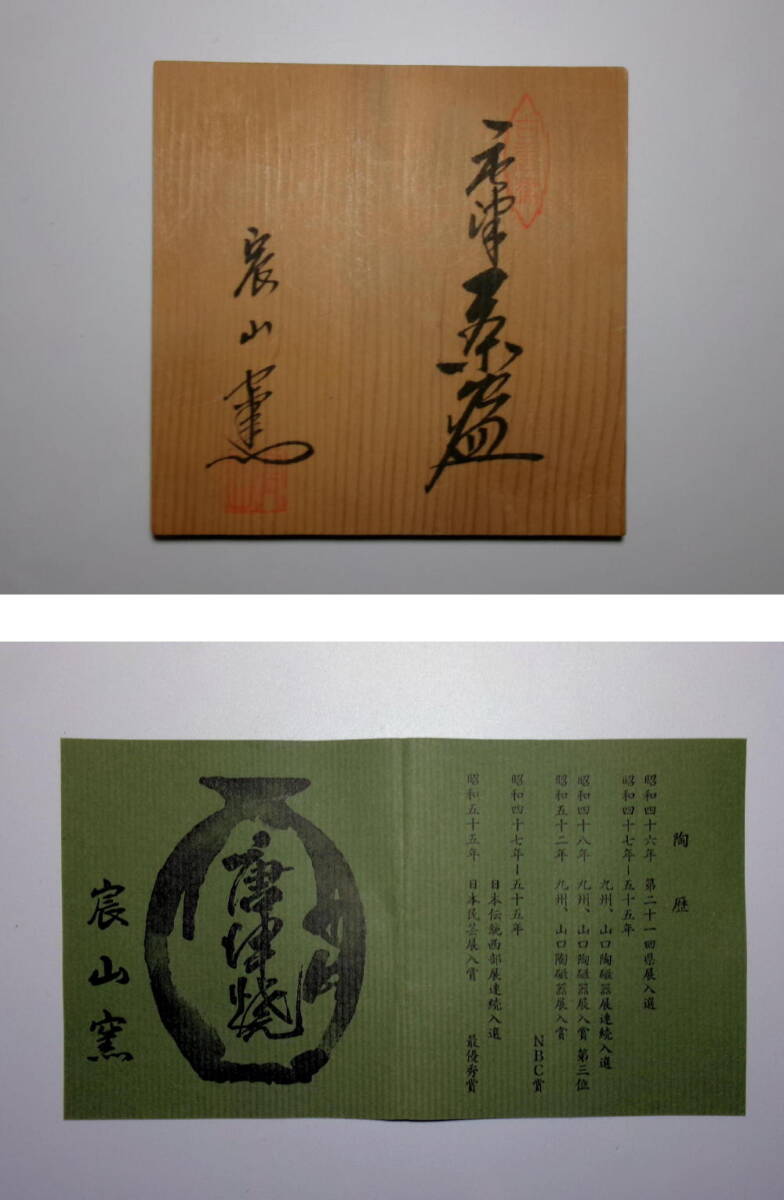 唐津茶盌
宸山窯
陶歴
昭和四十六年 第二十一回県展入選
昭和四十七年ー五十五年
九州、山口陶磁器展連続入選
昭和四十八年 九州、山口陶磁器展入賞 第三位
昭和五十二年 九州、山口陶磁器展入賞
NBC賞
昭和四十七年ー五十五年
日本伝統西部展連続入選
昭和五十五年 日本民芸展入賞 最優秀賞
唐津焼
宸山窯